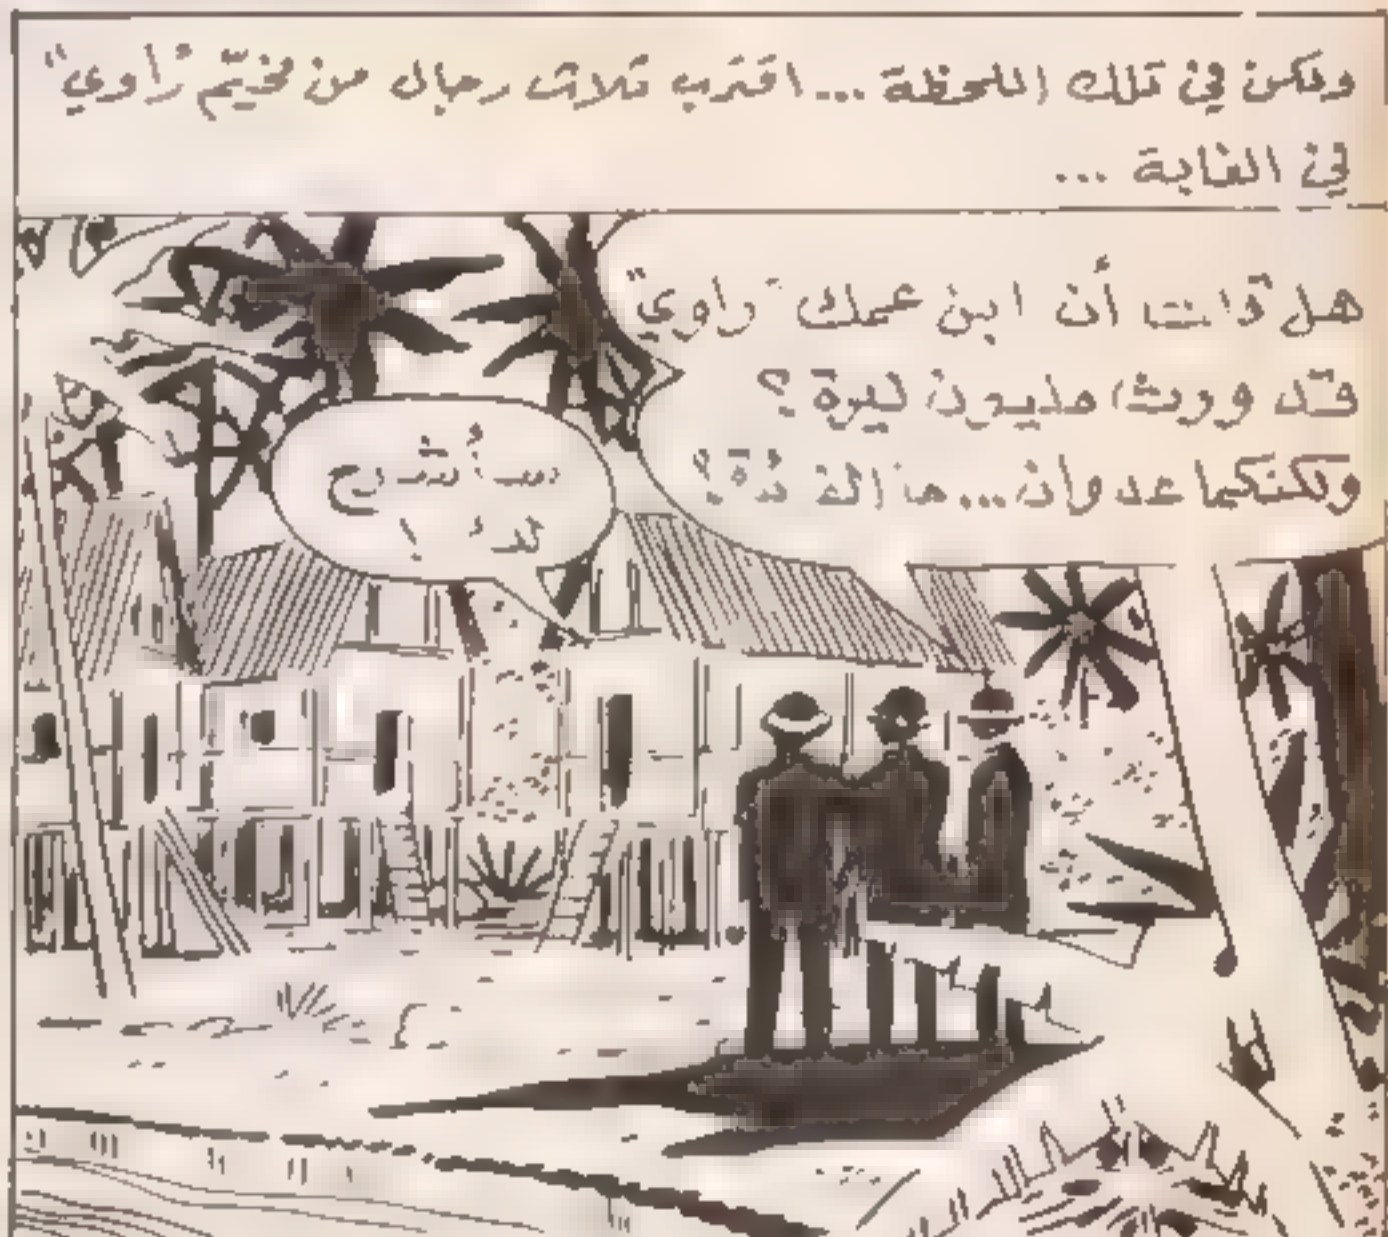 ولكن في تلك اللحظة ... اقترب ثلاث رجال من مخيّم "راوي"
في الغابة ...
هل قلت أن ابن عمك "راوي"
قد ورث مليون ليرة ؟
ولكنكما عدوان ...
سأشرح
لك !